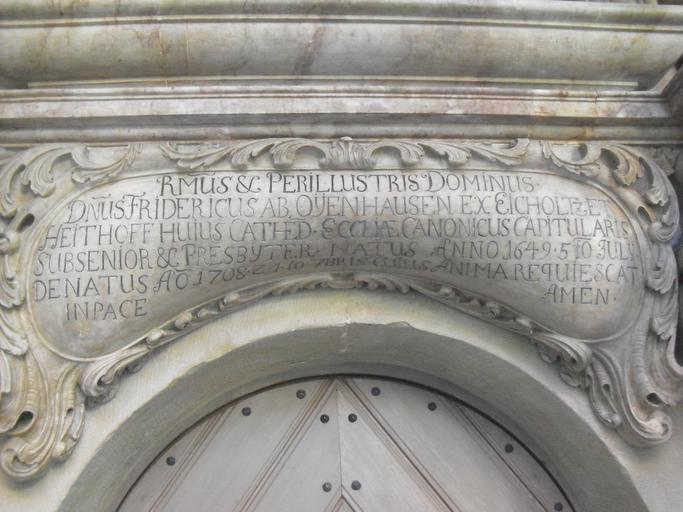 RMUS & PERILLUSTRIS DOMINUS
DÑUS FRIDERICUS AB, OŸENHAUSEN EX EICHOLTZ ET
HEITHOFF HUIUS CATHED. ECCLIÆ CANONICUS CAPITULARIS
SUBSENIOR & PRESBYTER. NATUS ANNO 1649. 5 TO JULI.
DENATUS AÕ 1708. 21. TO 7BRIS CUIUS ANIMA REQUIESCAT
IN PACE AMEN.